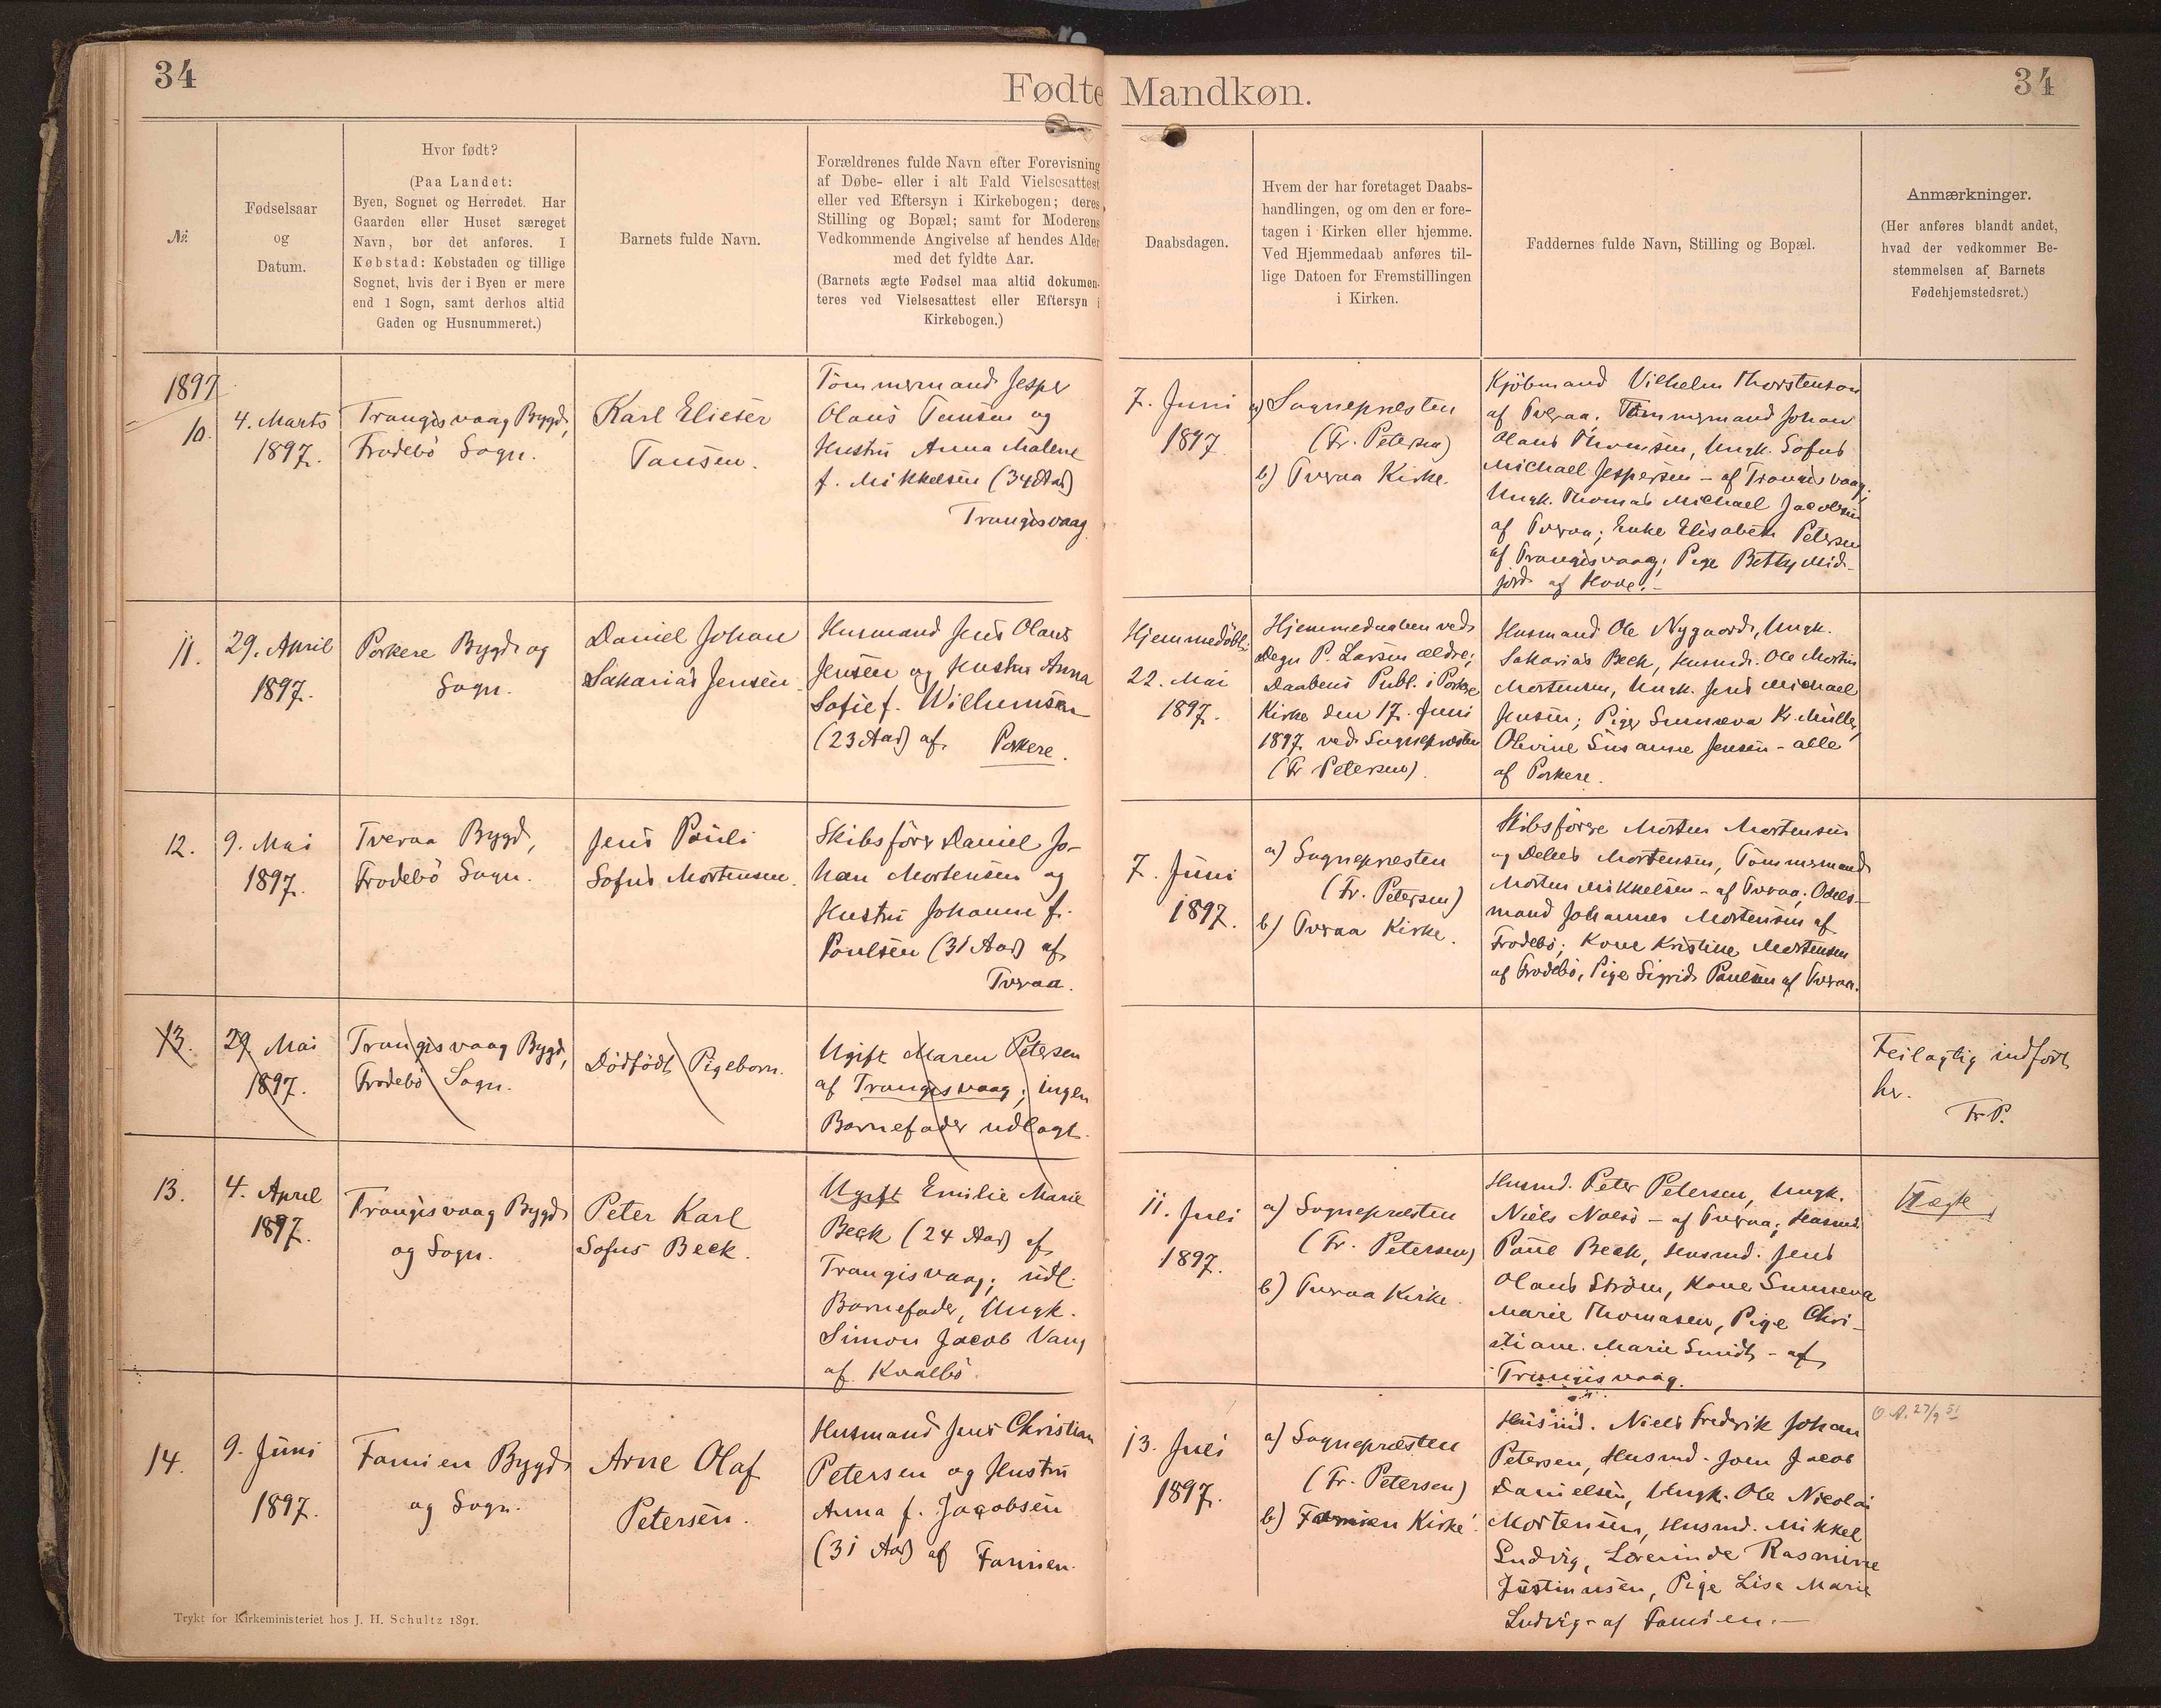 34
Fødte Mandkøn.
34
№
Fødselsaar
og
Datum.
Hvor født?
(Paa Landet:
Byen, Sognet og Herredet. Har
Gaarden eller Huset særeget
Navn, bør det anføres. I
Købstad: Købstaden og tillige
Sognet, hvis der i Byen er mere
end 1 Sogn, samt derhos altid
Gaden og Husnummeret.)
Barnets fulde Navn.
Forældrenes fulde Navn efter Forevisning
af Døbe- eller i alt Fald Vielsesattest
eller ved Eftersyn i Kirkebogen; deres
Stilling og Bopæl; samt for Moderens
Vedkommende Angivelse af hendes Alder
med det fyldte Aar.
(Barnets ægte Fødsel maa altid dokumen-
teres ved Vielsesattest eller Eftersyn i
Kirkebogen.)
Daabsdagen.
Hvem der har foretaget Daabs-
handlingen, og om den er fore-
tagen i Kirken eller hjemme.
Ved Hjemmedaab anføres til-
lige Datoen for Fremstillingen
i Kirken.
Faddernes fulde Navn, Stilling og Bopæl.
Anmærkninger.
(Her anføres blandt andet,
hvad der vedkommer Be-
stemmelsen af Barnets
Fødehjemstedsret.)
1897
10.
4. Marts
1897.
Trangisvaag Bygd,
Frodebö Sogn.
Karl Elieser
Tausen.
Tömmermand Jesper
Olaus Tausen og
Hustru Anna Malene
f. Mikkelsen (34 Aar)
Trangisvaag.
7. Juni
1897
a) Sognepræsten
(Fr. Petersen)
b) Tveraa Kirke.
Kjöbmand Vilhelm Thorstensen
af Tveraa, Tömmermand Johan
Olaus Thomsen, Ungk. Sofus
Michael Jespersen - af Trangisvaag;
Ungk. Thomas Michael Jacobsen
af Tveraa; Enke Elisabeth Petersen
af Trangisvaag; Pige Betty Mid-
jord af Hove. -
11.
29. April
1897.
Porkere Bygd og
Sogn.
Daniel Johan
Sakarias Jensen
Husmand Jens Olaus
Jensen og Hustru Anna
Sofie f. Wilhelmsen
(23 Aar) af Porkere.
Hjemmedöbt:
22. Mai
1897.
Hjemmedaaben ved
Degn P. Larsen ældre;
Daabens Publ. i Porkere
Kirke den 17. Juni
1897 ved Sognepræsten
(Fr Petersen).
Husmand Ole Nygaard, Ungk.
Sakarias Beck, Husmd. Ole Mortin
Mortensen, Ungk. Jens Michael
Jensen; Pige Sunneva Kr. Müller,
Olevine Susanne Jensen - alle
af Porkere.
12.
9. Mai
1897.
Tveraa Bygd,
Frodebö Sogn.
Jens Pauli
Sofus Mortensen.
Skibsförer Daniel Jo-
han Mortensen og
Hustru Johanne f.
Poulsen (31 Aar) af
Tveraa.
7. Juni
1897.
a) Sognepræsten
(Fr. Petersen)
b) Tveraa Kirke.
Skibsförere Morten Mortensen
og Mortensen, Tömmermand
Morten Mikkelsen - af Tveraa; Odels-
mand Johannes Mortensen af
Frodebö; Kone Kristine Mortensen
af Frodebö, Pige Sigrid Poulsen af Tveraa.
13.
29. Mai
1897.
Trangisvaag Bygd,
Frodebö Sogn.
Dödfödt Pigebarn.
Ugift Maren Petersen
af Trangisvaag; ingen
Barnefader udlagt.
Feilagtig indfört
her.
Fr. P.
13.
4. April
1897.
Trangisvaag Bygd
og Sogn.
Peter Karl
Sofus Beck.
Ugift Emilie Marie
Beck (24 Aar) af
Trangisvaag; udl.
Barnefader, Ungk.
Simon Jacob Vang
af Kvalbö.
11. Juli
1897.
a) Sognepræsten
(Fr. Petersen)
b) Tveraa Kirke.
Husmd. Peter Petersen, Ungk.
Niels Nolsö - af Tveraa; Husmd.
Poul Beck, Husmd. Jens
Olaus Ström, Kone Sunneva
Marie Thomasen, Pige Chri-
stiane Marie Smidt - af
Trangisvaag.
Uægte
14.
9. Juni
1897.
Famien Bygd
og Sogn.
Arne Olaf
Petersen.
Husmand Jens Christian
Petersen og Hustru
Anna f. Jacobsen
(31 Aar) af Famien.
13. Juli
1897.
a) Sognepræsten
(Fr. Petersen)
b) Famien Kirke.
Husmd. Niels Fredrik Johan
Petersen, Husmd. Joen Jacob
Danielsen, Ungk. Ole Nicolai
Mortensen, Husmd. Mikkel
Ludvig, Lovrinde Rasmine
Justinussen, Pige Lisa Marie
Ludvig - af Famien. -
27/9 51
Trykt for Kirkeministeriet hos J. H. Schultz 1891.